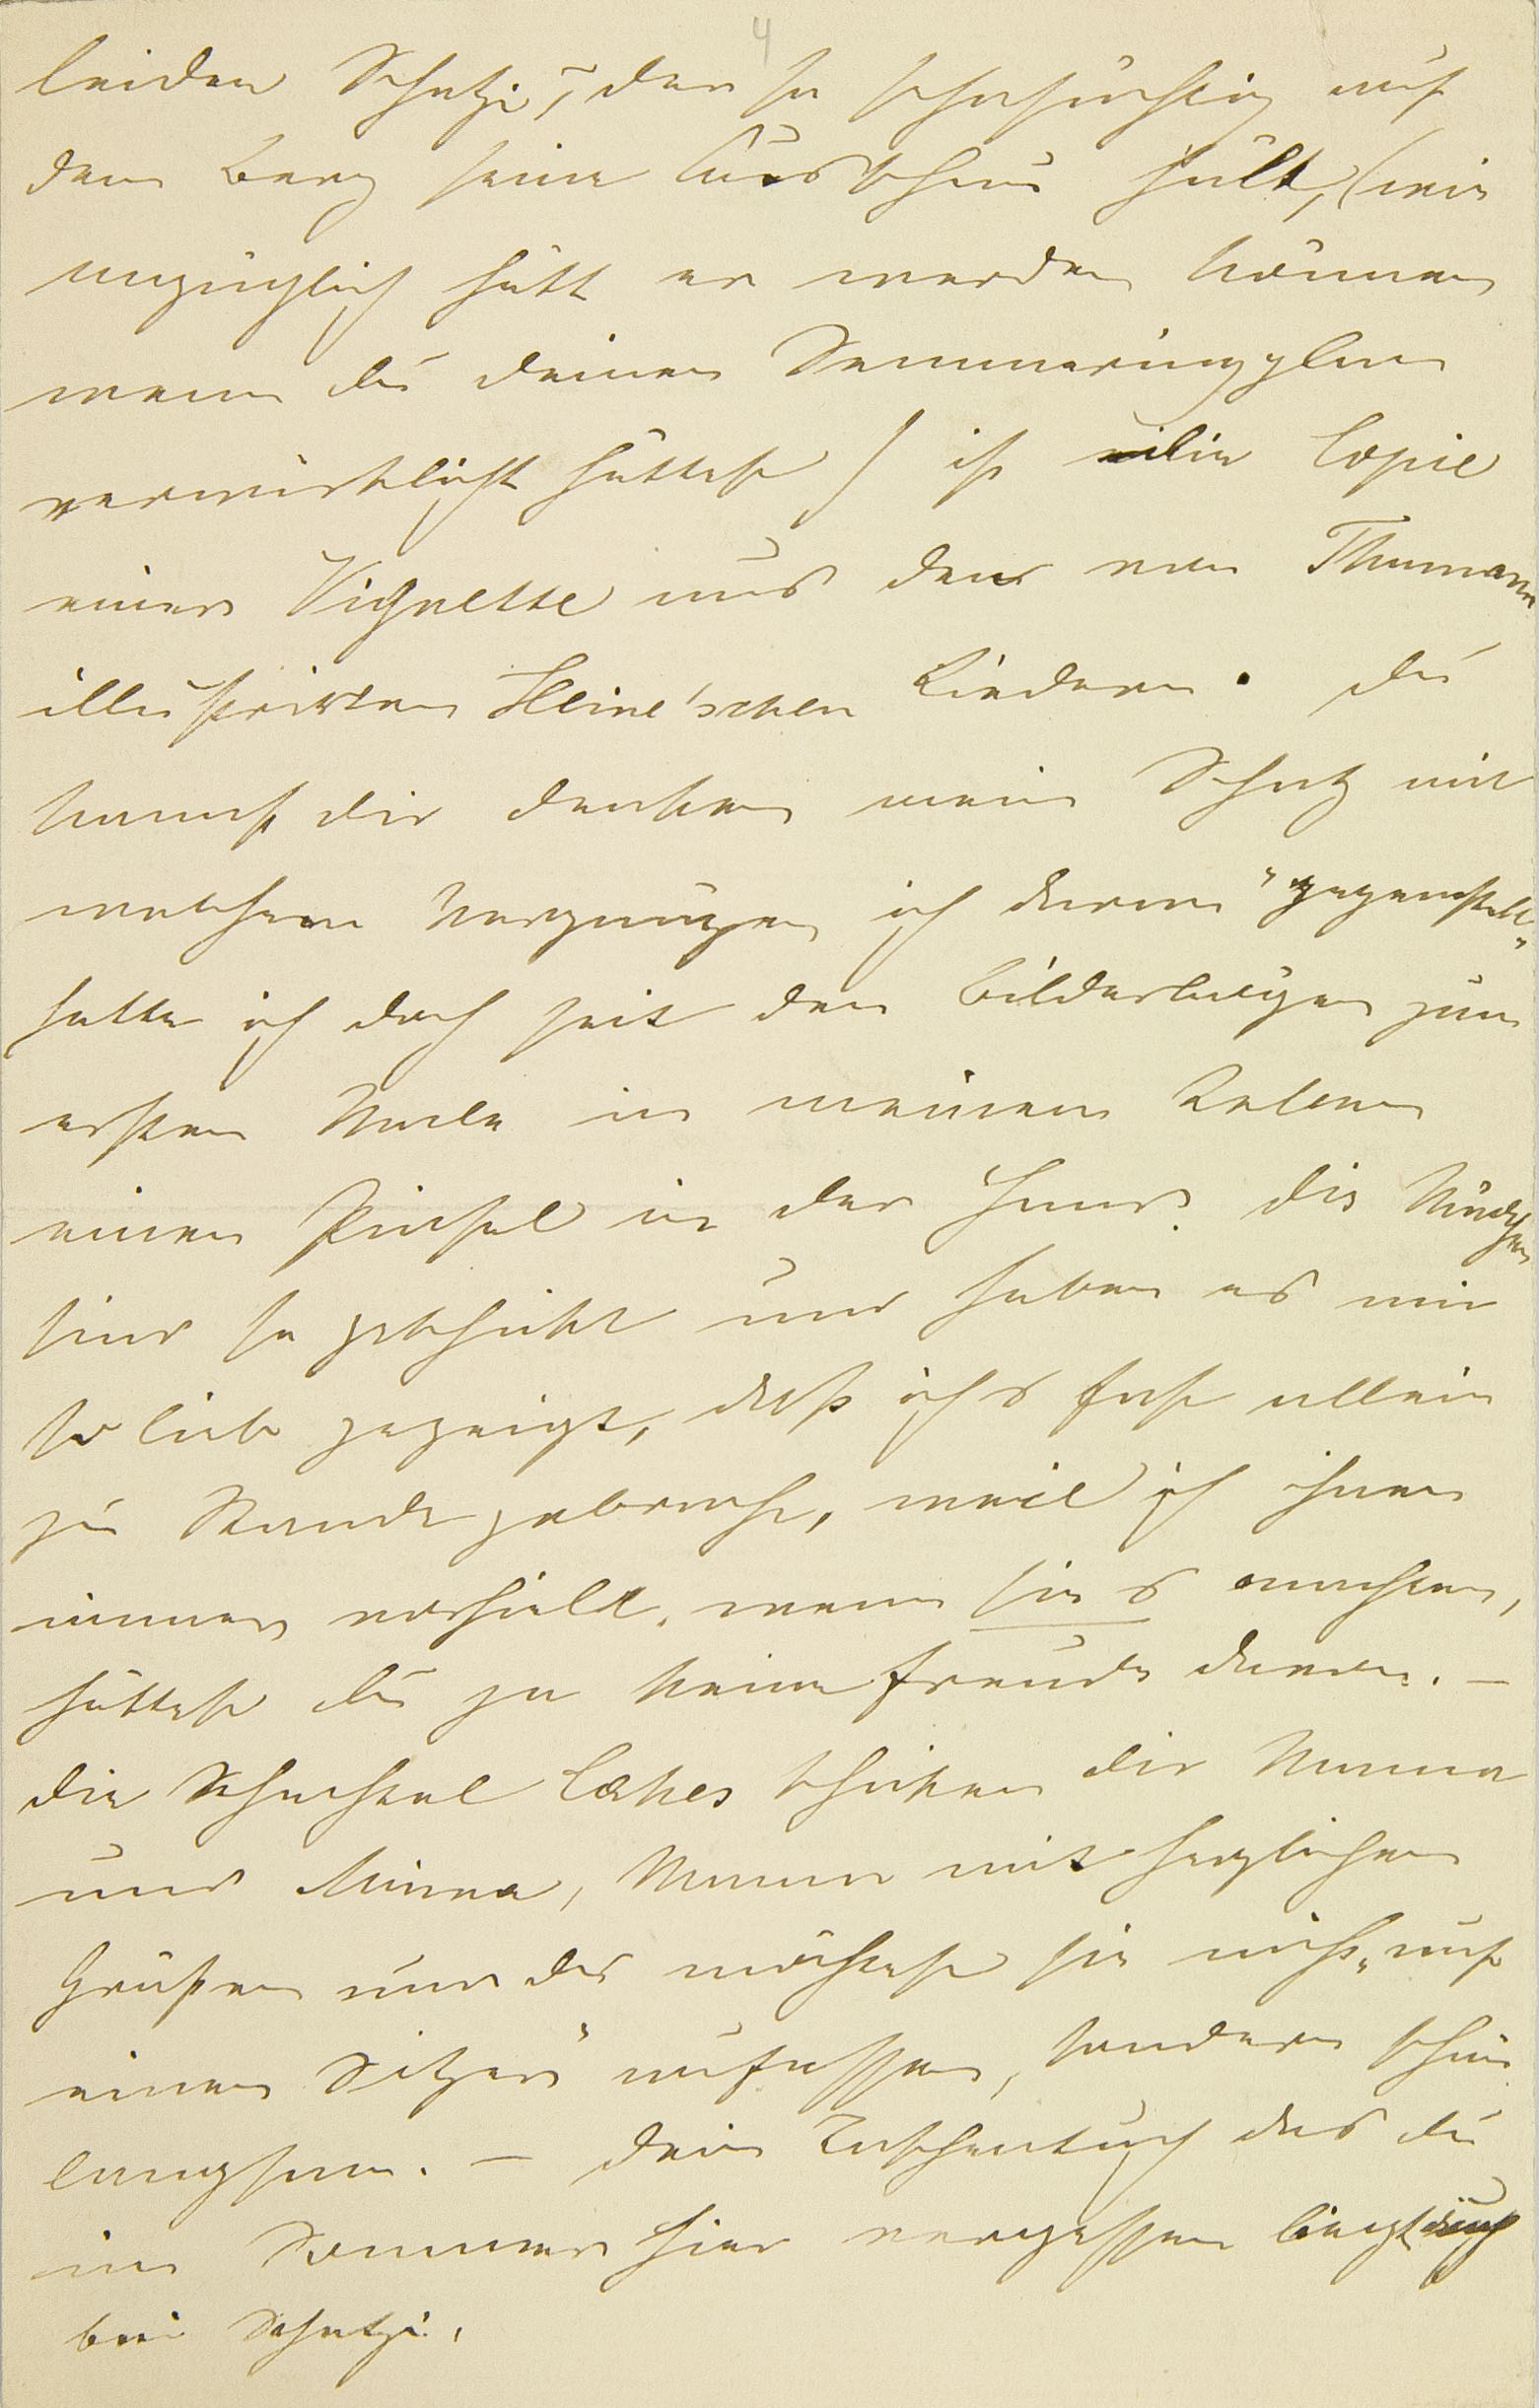 4
beiden Schatzi, der so sehnsüchtig auf
dem Berg seine Ausschau hält, (wie
anzüglich hätt er werden können
wenn du deinen Semmeringplan
verwirklicht hättest) ist eine Copie
einer Vignette aus den von Thumann
illustrirten Heine'schen Liedern. Du
kannst dir denken mein Schatz mit
welchem Vergnügen ich daran "gepenselt"
hatte ich doch seit den Bilderbögen zum
ersten Male in meinem Leben
einen Pinsel in der Hand. Die Mädchen
sind so geschickt und haben es mir
so lieb gezeigt, daß ich's fast allein
zu Stande gebracht, weil ich ihnen
immer vorhielt, wenn sie's machten,
hättest du ja keine Freude daran. –
Die Schachtel Cakes schicken dir Mama
und Minna, Mama mit herzlichen
Grüßen und du möchtest sie nicht "auf
einen Sitzer" aufessen, sondern schön
langsam. – Dein Taschentuch das du
im Sommer hier vergessen liegt auch
bei Schatzi.